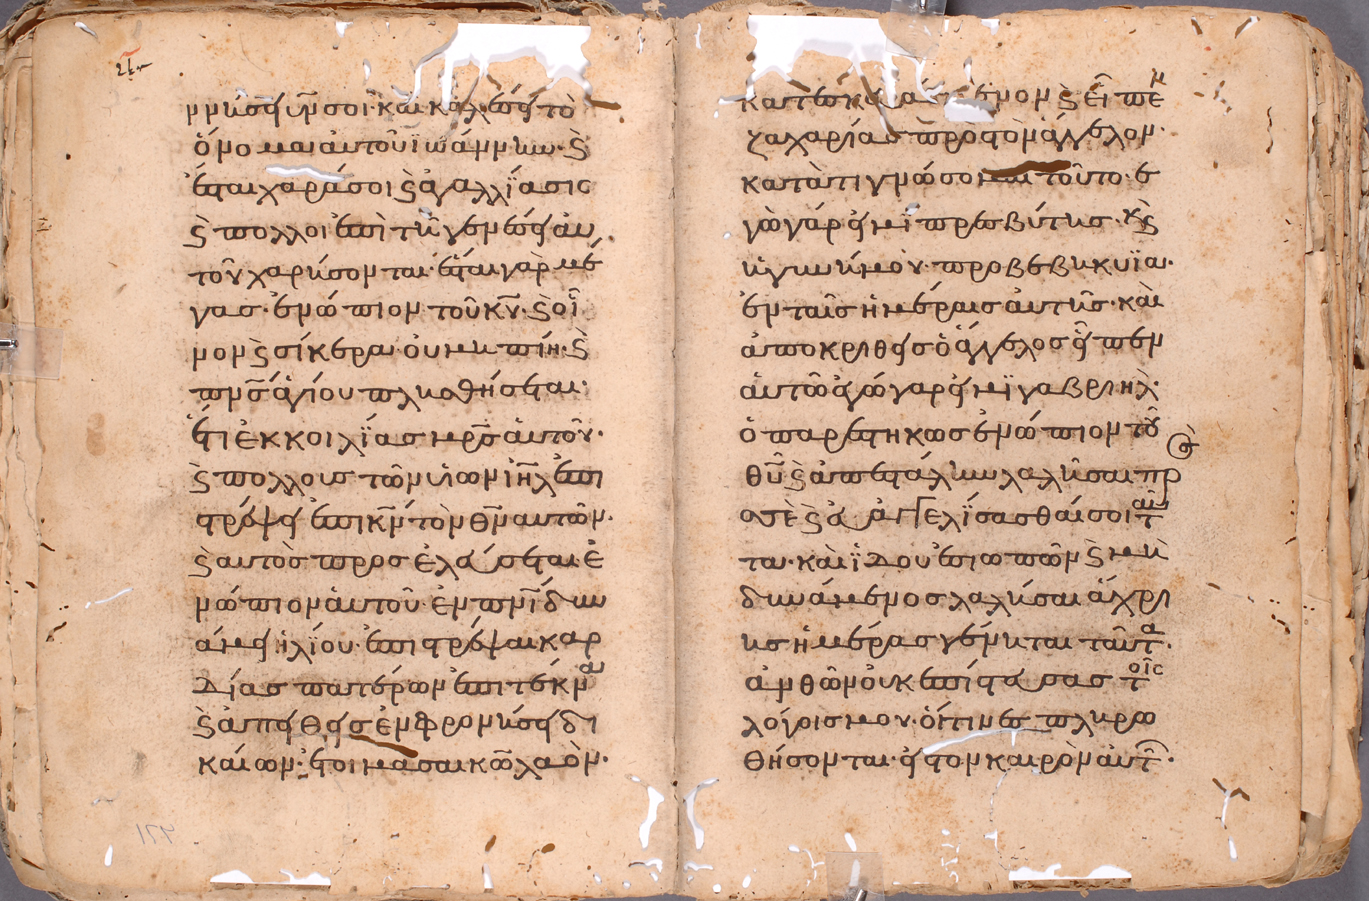 ννήσει υῖν σοι· και καλέσεις τὸ
ὄνομα αυτοῦ ϊωάννην· ϗ
ἔσται χαρά σοι ϗ ἀγαλλίασις
ϗ πολλοι ἐπὶ τῆ γενέσει αυ
τοῦ χαρήσονται· ἔσται γὰρ μέ
γας· ἐνώπιον τοῦ κ̅υ̅· ϗ οἶ
νον ϗ σίκερα οὐ μη πίη· ϗ
π̅ν̅ς̅ ἁγίου πλησθήσεται·
ἔτι ἐκ κοιλίας μ̅ρ̅ς̅ ἁυτοῦ·
ϗ πολλους τῶν υἱων ι̅η̅λ̅ ἐπι
στρέψει ἐπι κ̅ν̅ τὸν θ̅ν̅ αυτῶν·
ϗ αυτὸς προσελεύσεται ἐ
νώπιον ἁυτοῦ· ἐν π̅ν̅ι̅ ϗ δυν
άμει ἡλίου· ἐπιστρέψαι καρ
δίας πατέρων ἐπι τέκνα
ϗ ἀπειθεῖς ἐν φρονήσει δι
καίων· ἑτοιμάσαι κ̅ω̅ λαὸν·
κατεσκευασμένον ϗ εἶπεν
ζαχαρίας πρὸς τὸν ἄγγελον·
κατὰ τι γνώσομαι τοῦτο· ε
γὼ γάρ εἰμι πρεσβύτης· ϗ
ἡ γυνή μου· προβεβηκυῖα·
ἐν ταῖς ἡμέραις αὐτῆς· καὶ
ἀποκριθεὶς ὁ ἄγγελος εἶπεν
αὐτῶ ἐγώ γαρ εἰμϊ γαβριηλ·
ὁ παρεστηκως ἐνώπιον τοῦ
θ̅υ̅ ϗ ἀπεστάλην λαλῆσαι πρ
ος σὲ ϗ εὐαγγελίσασθαί σοι ταῦ
τα· καὶ ϊδου ἔση σιωπῶν ϗ μὴ
δυνάμενος λαλῆσαι ἄχρι
ης ἡμέρας γένηται ταῦτα·
ἀνθῶν οὐκ ἐπίστευσας τοῖς
λόγοις μου· οἵτινες πληρω
θήσονται· εἰς τον καιρὸν αὐτῶ·